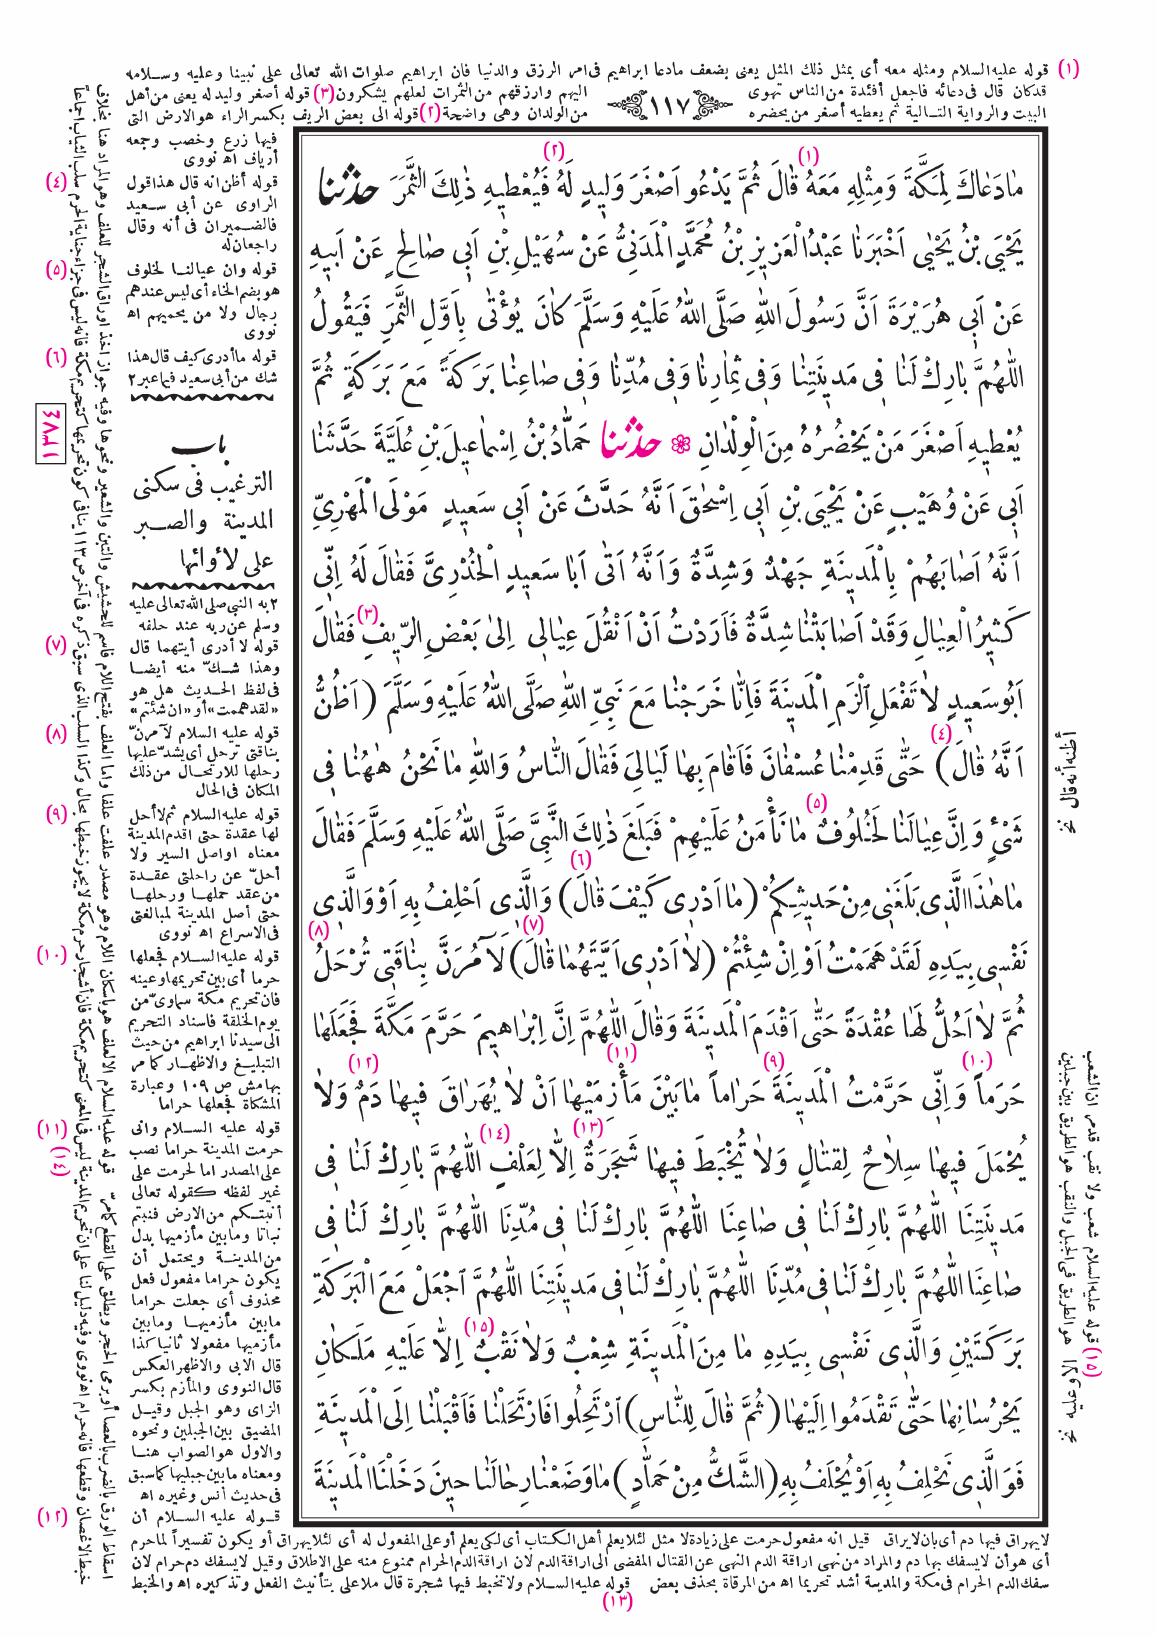 (١) قوله عليه السلام ومثله معه أى بمثل ذلك المثل يعنى بضعف مادعا ابراهيم فى امر الرزق والدنيا فإن ابراهيم صلوات الله تعالى على نبينا وعليه وسلامه
قدكان قال فى دعائه فاجعل أفئدة من الناس تهوى
اليهم وارزقهم من الثمرات لعلهم يشكرون (٣) قوله أصغر وليد له يعنى من أهل
البيت والرواية التالية ثم يعطيه أصغر من يحضره
من الولدان وهى واضحة (٢) قوله الى بعض الريف بكسر الراء هو الارض التى
١١٧
مَا دَعَاكَ لِمَكَّةَ وَمِثْلِهِ مَعَهُ قَالَ ثُمَّ يَدْعُو اَصْغَرَ وَلِيدٍ لَهُ فَيُعْطِيهِ ذٰلِكَ الثَّمَرَ حدثنا
يَحْيَى بْنُ يَحْيٰى اَخْبَرَنَا عَبْدُ الْعَزِيزِ بْنُ مُحَمَّدٍ الْمَدَنِىُّ عَنْ سُهَيْلِ بْنِ اَبِى صَالِحٍ عَنْ اَبِيهِ
عَنْ اَبِى هُرَيْرَةَ اَنَّ رَسُولَ اللّٰهِ صَلَّى اللّٰهُ عَلَيْهِ وَسَلَّمَ كَانَ يُؤْتٰى بِاَوَّلِ الثَّمَرِ فَيَقُولُ
اَللّٰهُمَّ بَارِكْ لَنَا فِى مَدِينَتِنَا وَفِى ثِمَارِنَا وَفِى مُدِّنَا وَفِى صَاعِنَا بَرَكَةً مَعَ بَرَكَةٍ ثُمَّ
يُعْطِيهِ اَصْغَرَ مَنْ يَحْضُرُهُ مِنَ الْوِلْدَانِ ❁ حدثنا حَمَّادُ بْنُ اِسْمَاعِيلَ بْنِ عُلَيَّةَ حَدَّثَنَا
اَبِى عَنْ وُهَيْبٍ عَنْ يَحْيَى بْنِ اَبِى اِسْحٰقَ اَنَّهُ حَدَّثَ عَنْ اَبِى سَعِيدٍ مَوْلَى الْمَهْرِىِّ
اَنَّهُ اَصَابَهُمْ بِالْمَدِينَةِ جَهْدٌ وَشِدَّةٌ وَاَنَّهُ اَتٰى اَبَا سَعِيدٍ الْخُدْرِىَّ فَقَالَ لَهُ اِنِّى
كَثِيرُ الْعِيَالِ وَقَدْ اَصَابَتْنَا شِدَّةٌ فَاَرَدْتُ اَنْ اَنْقُلَ عِيَالِى اِلٰى بَعْضِ الرِّيفِ فَقَالَ
اَبُو سَعِيدٍ لَا تَفْعَلِ الْزَمِ الْمَدِينَةَ فَاِنَّا خَرَجْنَا مَعَ نَبِىِّ اللّٰهِ صَلَّى اللّٰهُ عَلَيْهِ وَسَلَّمَ (اَظُنُّ
اَنَّهُ قَالَ) حَتّٰى قَدِمْنَا عُسْفَانَ فَاَقَامَ بِهَا لَيَالِىَ فَقَالَ النَّاسُ وَاللّٰهِ مَا نَحْنُ هٰهُنَا فِى
شَىْءٍ وَاِنَّ عِيَالَنَا لَخُلُوفٌ مَا نَأْمَنُ عَلَيْهِمْ فَبَلَغَ ذٰلِكَ النَّبِىَّ صَلَّى اللّٰهُ عَلَيْهِ وَسَلَّمَ فَقَالَ
مَا هٰذَا الَّذِى بَلَغَنِى مِنْ حَدِيثِكُمْ (مَا اَدْرِى كَيْفَ قَالَ) وَالَّذِى اَحْلِفُ بِهِ اَوْ وَالَّذِى
نَفْسِى بِيَدِهِ لَقَدْ هَمَمْتُ اَوْ اِنْ شِئْتُمْ (لَا اَدْرِى اَيَّتَهُمَا قَالَ) لَآمُرَنَّ بِنَاقَتِى تُرْحَلُ
ثُمَّ لَا اَحُلُّ لَهَا عُقْدَةً حَتّٰى اَقْدَمَ الْمَدِينَةَ وَقَالَ اللّٰهُمَّ اِنَّ اِبْرَاهِيمَ حَرَّمَ مَكَّةَ فَجَعَلَهَا
حَرَمًا وَاِنِّى حَرَّمْتُ الْمَدِينَةَ حَرَامًا مَا بَيْنَ مَأْزِمَيْهَا اَنْ لَا يُهَرَاقَ فِيهَا دَمٌ وَلَا
يُحْمَلَ فِيهَا سِلَاحٌ لِقِتَالٍ وَلَا يُخْبَطَ فِيهَا شَجَرَةٌ اِلَّا لِعَلْفٍ اللّٰهُمَّ بَارِكْ لَنَا فِى
مَدِينَتِنَا اللّٰهُمَّ بَارِكْ لَنَا فِى صَاعِنَا اللّٰهُمَّ بَارِكْ لَنَا فِى مُدِّنَا اللّٰهُمَّ بَارِكْ لَنَا فِى
صَاعِنَا اللّٰهُمَّ بَارِكْ لَنَا فِى مُدِّنَا اللّٰهُمَّ بَارِكْ لَنَا فِى مَدِينَتِنَا اللّٰهُمَّ اجْعَلْ مَعَ الْبَرَكَةِ
بَرَكَتَيْنِ وَالَّذِى نَفْسِى بِيَدِهِ مَا مِنَ الْمَدِينَةِ شِعْبٌ وَلَا نَقْبٌ اِلَّا عَلَيْهِ مَلَكَانِ
يَحْرُسَانِهَا حَتّٰى تَقْدَمُوا اِلَيْهَا (ثُمَّ قَالَ لِلنَّاسِ) ارْتَحِلُوا فَارْتَحَلْنَا فَاَقْبَلْنَا اِلَى الْمَدِينَةِ
فَوَالَّذِى نَحْلِفُ بِهِ اَوْ يُحْلَفُ بِهِ (الشَّكُّ مِنْ حَمَّادٍ) مَا وَضَعْنَا رِحَالَنَا حِينَ دَخَلْنَا الْمَدِينَةَ
فيها زرع وخصب وجمعه
أرياف اه نووى
(٤) قوله أظن انه قال هذا قول
الراوى عن أبى سعيد
فالضميران فى أنه وقال
راجعان له
(٥) قوله وان عيالنا لخلوف
هو بضم الخاء أى ليس عندهم
رجال ولا من يحميهم اه
نووى
(٦) قوله ما أدرى كيف قال هذا
شك من أبى سعيد فيما عبر ٢
باب
الترغيب فى سكنى
المدينة والصبر
على لأوائها
٢ به النبى صلى الله تعالى عليه
وسلم عن ربه عند حلفه
(٧) قوله لا أدرى أيتهما قال
وهذا شك منه أيضا
فى لفظ الحديث هل هو
«لقد هممت» أو «ان شئتم»
(٨) قوله عليه السلام لآمرن
بناقتى ترحل أى يشد عليها
رحلها للارتحال من ذلك
المكان فى الحال
(٩) قوله عليه السلام ثم لا أحل
لها عقدة حتى اقدم المدينة
معناه اواصل السير ولا
أحل عن راحلتى عقدة
من عقد حملها ورحلها
حتى أصل المدينة لمبالغتى
فى الاسراع اه نووى
(١٠) قوله عليه السلام فجعلها
حرما أى بين تحريمها وعينه
فان تحريم مكة سماوى من
يوم الخلقة فاسناد التحريم
الى سيدنا ابراهيم من حيث
التبليغ والاظهار كما مر
بهامش ص ١٠٩ وعبارة
المشكاة فجعلها حراما
(١١) قوله عليه السلام وانى
حرمت المدينة حراما نصب
على المصدر اما لحرمت على
غير لفظه كقوله تعالى
أنبتكم من الارض فنبتم
نباتا وما بين مأزميها بدل
من المدينة ويحتمل أن
يكون حراما مفعول فعل
محذوف أى جعلت حراما
مابين مأزميها ومابين
مأزميها مفعولا ثانيا كذا
قال الابى والاظهر العكس
قال النووى والمأزم بكسر
الزاى وهو الجبل وقيل
المضيق بين الجبلين ونحوه
والاول هو الصواب هنا
ومعناه مابين جبليها كما سبق
فى حديث أنس وغيره اه
(١٢) قوله عليه السلام أن
لا يهراق فيها دم أى بان لا يراق قيل انه مفعول حرمت على زيادة لا مثل لئلا يعلم أهل الكتاب أى لكى يعلم أو على المفعول له أى لئلا يهراق أو يكون تفسيراً لما حرم
أى هو أن لا يسفك بها دم والمراد من نهى اراقة الدم النهى عن القتال المفضى الى اراقة الدم لان اراقة الدم الحرام ممنوع منه على الاطلاق وقيل لا يسفك دم حرام لان
سفك الدم الحرام فى مكة والمدينة أشد تحريما اه من المرقاة بحذف بعض (١٣) قوله عليه السلام ولا تخبط فيها شجرة قال ملا على بتأنيث الفعل وتذكيره اه والخبط
(١٥) قوله عليه السلام شعب ولا نقب قدمر ان الشعب
هو الطريق فى الجبل والنقب هو الطريق بين جبلين